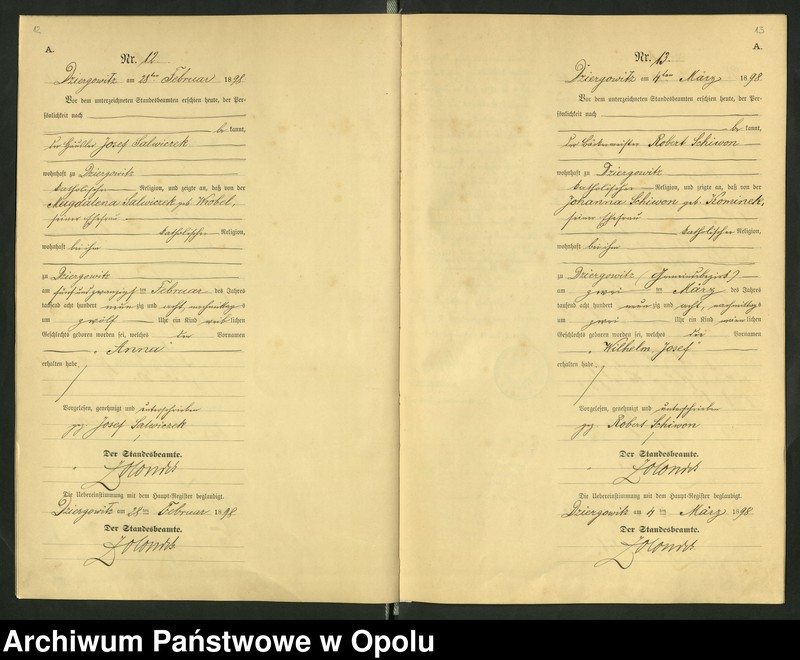 12
A.
Nr. 12.
Dziergowitz am 28ten Februar 1898.
Vor dem unterzeichneten Standesbeamten erschien heute, der Per-
sönlichkeit nach
be kannt,
der Häusler Josef Salwiczek
wohnhaft zu Dziergowitz
katholischer Religion, und zeigte an, daß von der
Magdalena Salwiczek geb. Wrobel,
seiner Ehefrau
katholischer Religion,
wohnhaft bei ihm
zu Dziergowitz
am fünfundzwanzigsten Februar des Jahres
tausend acht hundert neunzig und acht, nachmittags
um zwölf Uhr ein Kind weiblichen
Geschlechts geboren worden sei, welches den Vornamen
"Anna"
erhalten habe.
Vorgelesen, genehmigt und unterschrieben
gez. Josef Salwiczek
Der Standesbeamte.
Die Uebereinstimmung mit dem Haupt-Register beglaubigt.
Dziergowitz am 28ten Februar 1898.
Der Standesbeamte.
13
A.
Nr. 13.
Dziergowitz am 4ten März 1898.
Vor dem unterzeichneten Standesbeamten erschien heute, der Per-
sönlichkeit nach
be kannt,
der Bäckermeister Robert Schiwon
wohnhaft zu Dziergowitz
katholischer Religion, und zeigte an, daß von der
Johanna Schiwon geb. Kominek,
seiner Ehefrau
katholischer Religion,
wohnhaft bei ihm
zu Dziergowitz (Gemeindebezirk)
am zwei ten März des Jahres
tausend acht hundert neunzig und acht, nachmittags
um zwei Uhr ein Kind männlichen
Geschlechts geboren worden sei, welches die Vornamen
"Wilhelm, Josef"
erhalten habe.
Vorgelesen, genehmigt und unterschrieben
gez. Robert Schiwon
Der Standesbeamte.
Die Uebereinstimmung mit dem Haupt-Register beglaubigt.
Dziergowitz am 4ten März 1898.
Der Standesbeamte.
Archiwum Państwowe w Opolu